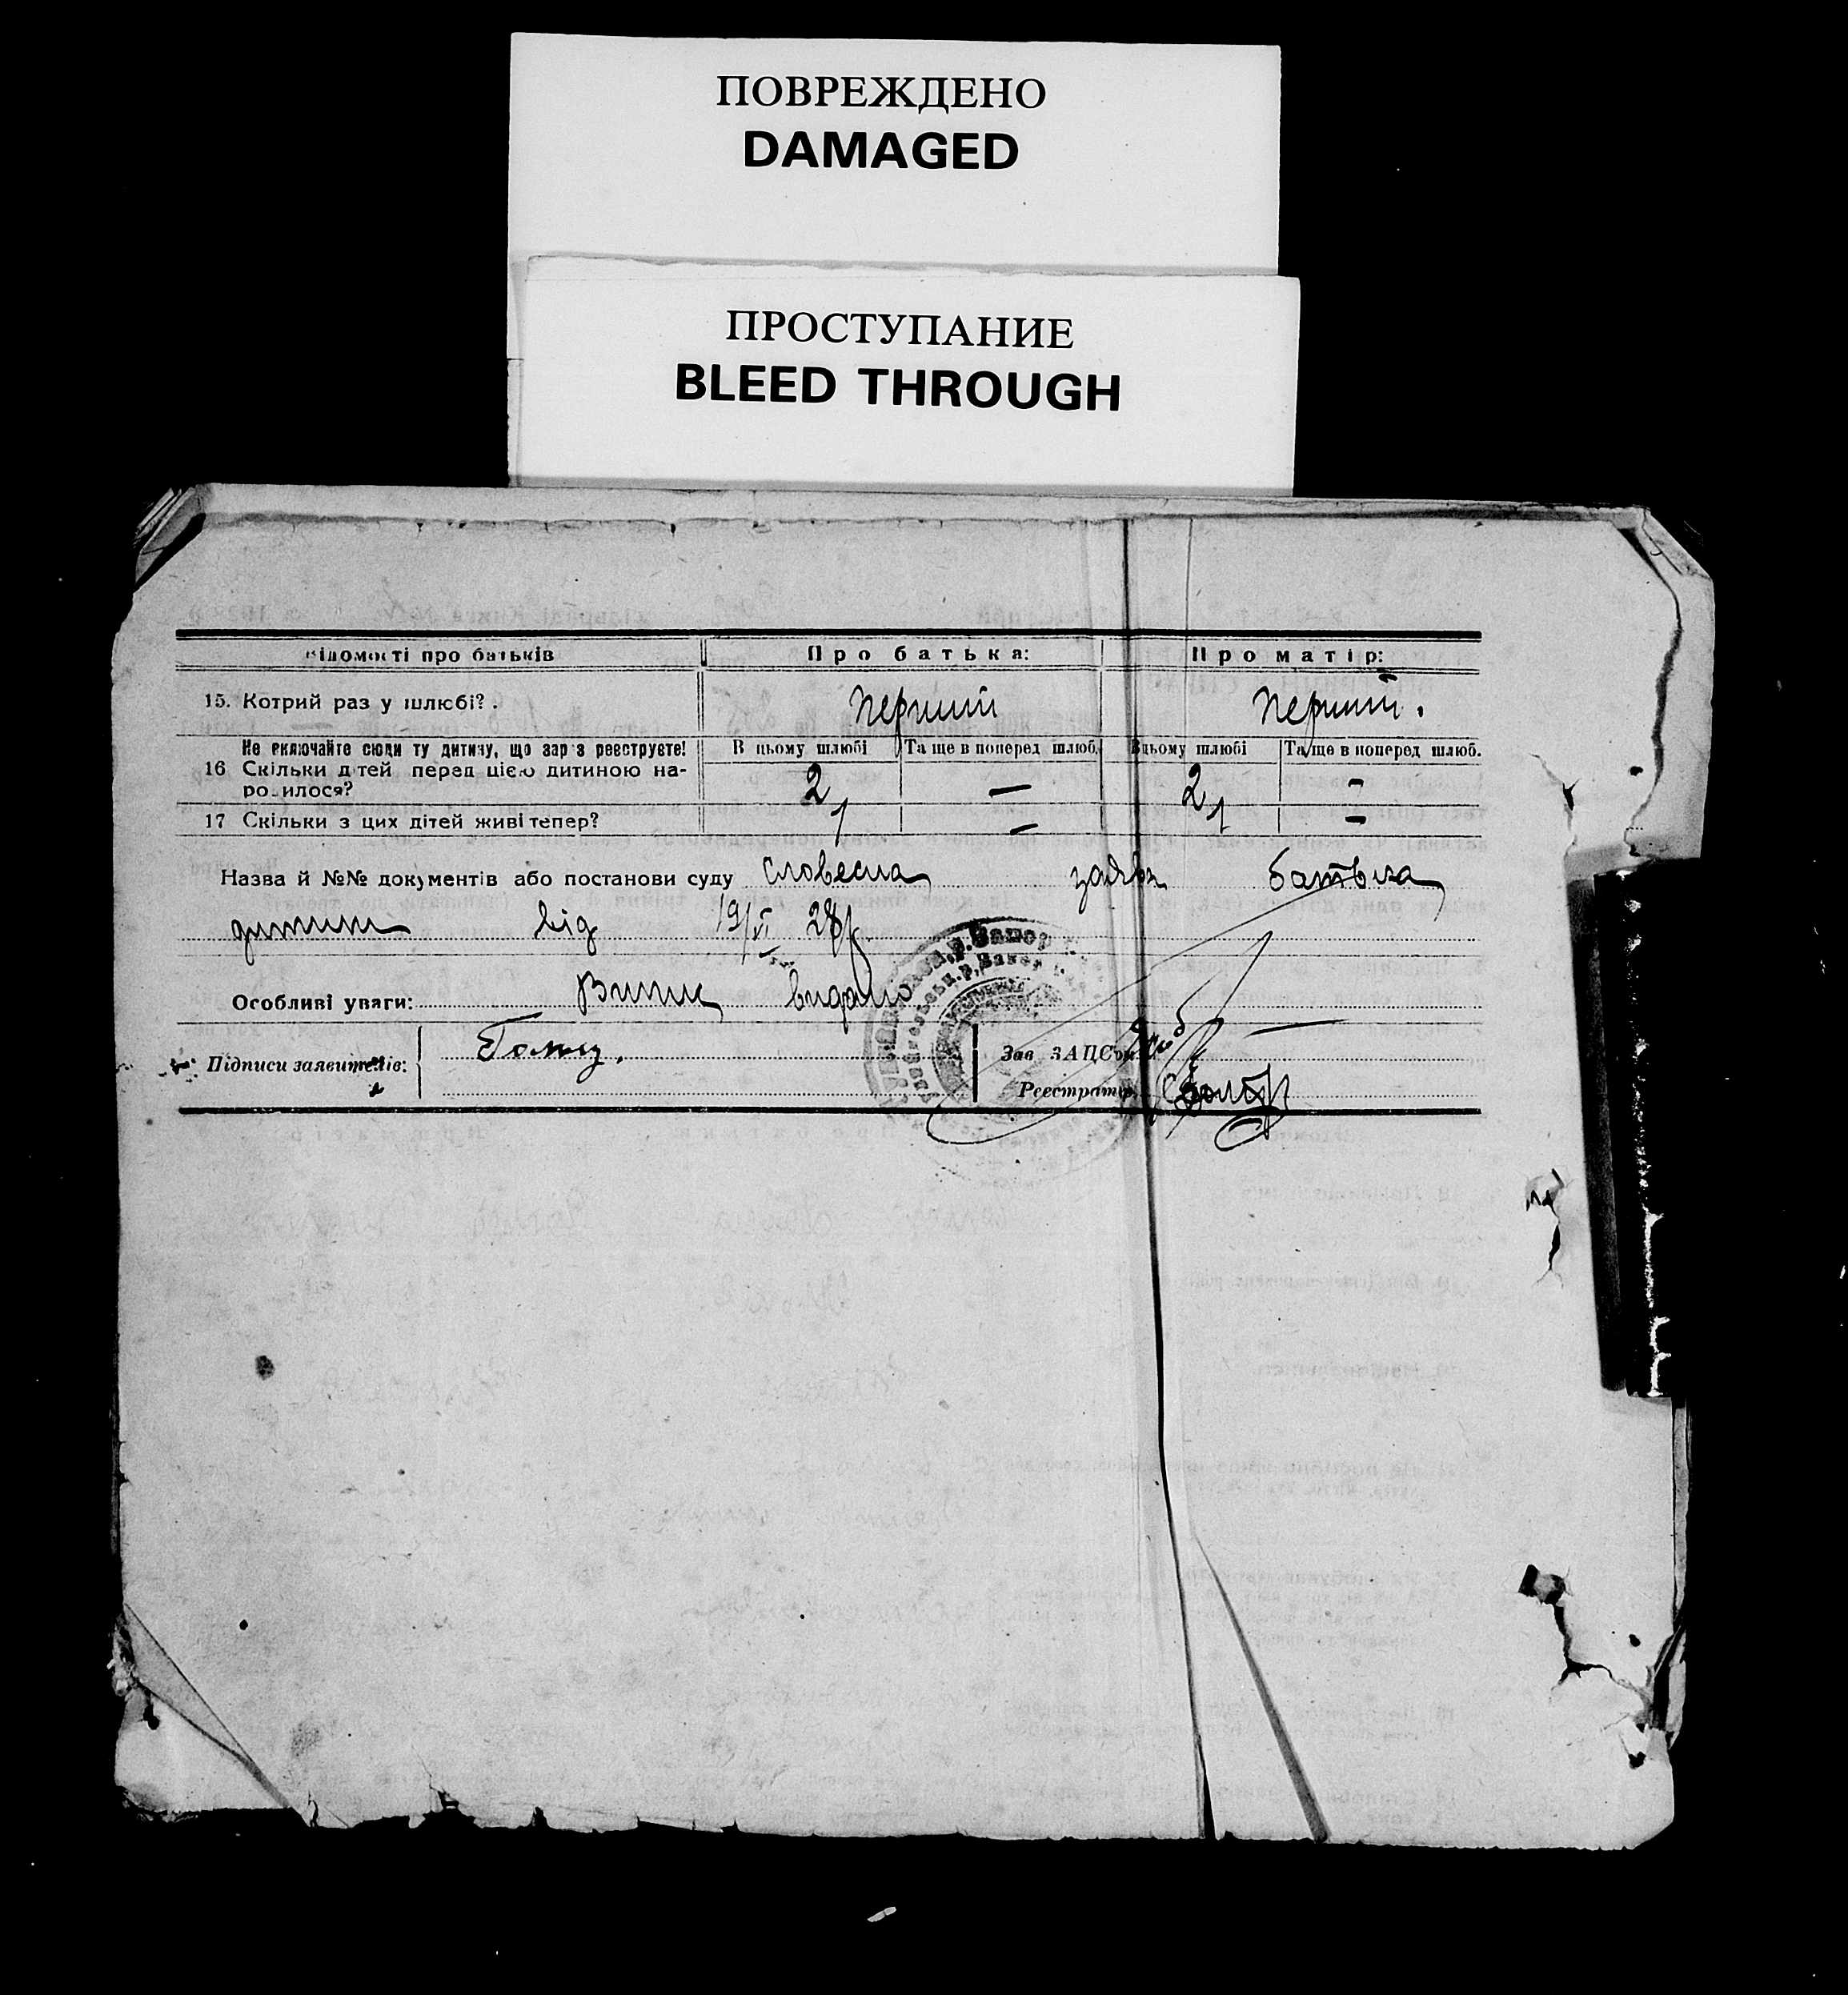 ПОВРЕЖДЕНО
DAMAGED
ПРОСТУПАНИЕ
BLEED THROUGH
Відомости про батьків
Про батька:
Про матір:
15. Котрий раз у шлюбі?.
перший
перший.
Не включайте сюди ту дитину, що зараз реєструєте!
В цьому шлюбі
Та ще в поперед шлюб.
В цьому шлюбі
Та ще в поперед шлюб.
16 Скільки дітей перед цією дитиною на-
родилося?
2
—
2
-
17 Скільки з цих дітей живі тепер?
1
—
1
-
Назва й №№ документів або постанови суду словесна заява батька
дитини від 19/VI 28р.
Особливі уваги: Випис видано
Підписи заявителів:
Зав ЗАЦСом
Реєстратор